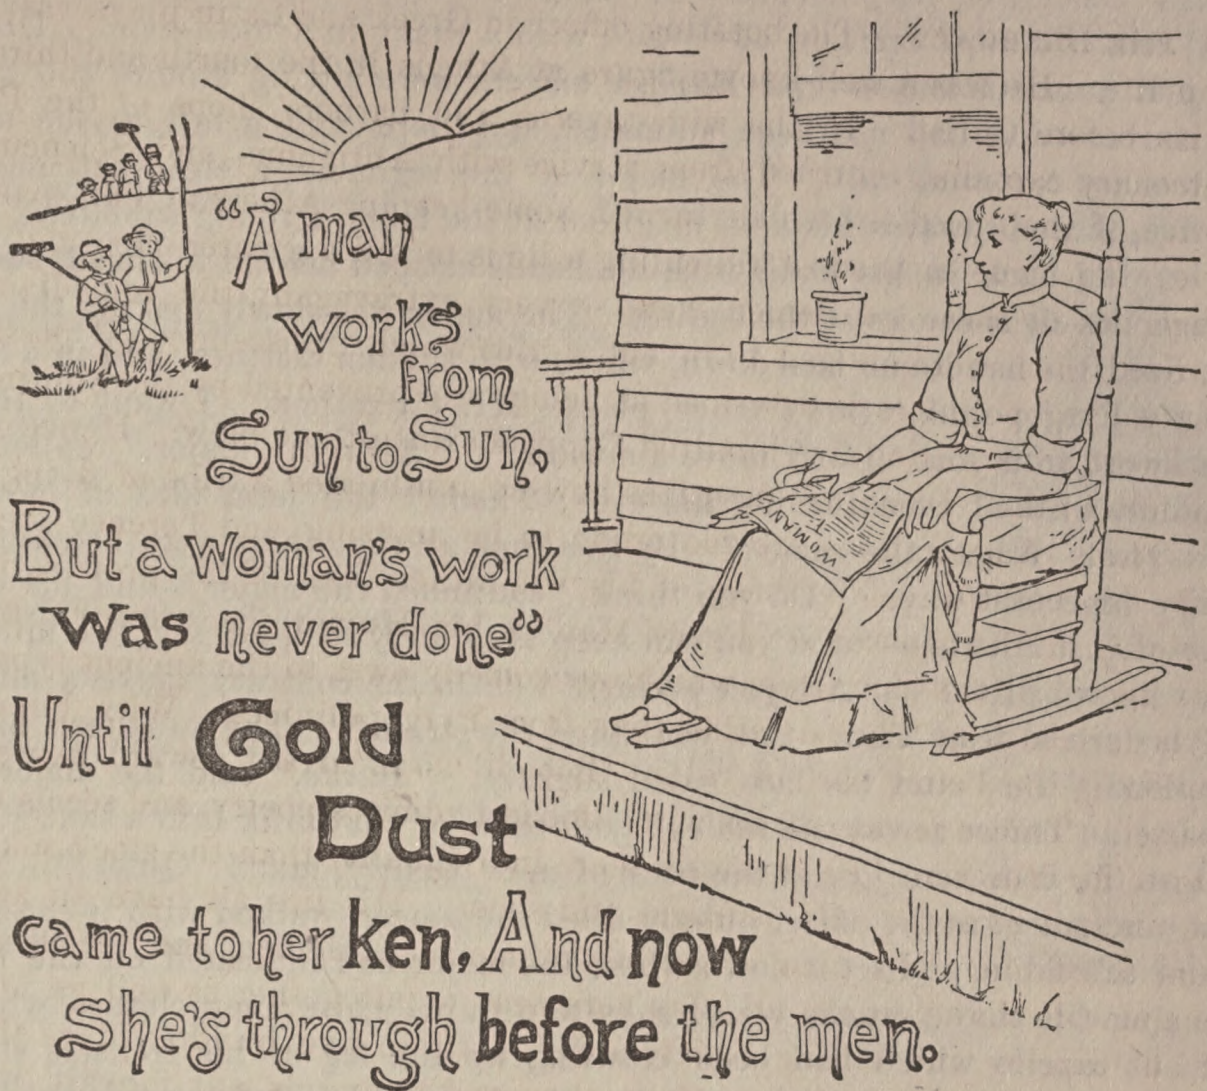 "A man
works
from
Sun to Sun,
But a woman's work
was never done"
Until Gold
Dust
came to her ken, And now
She's through before the men.
WOMAN